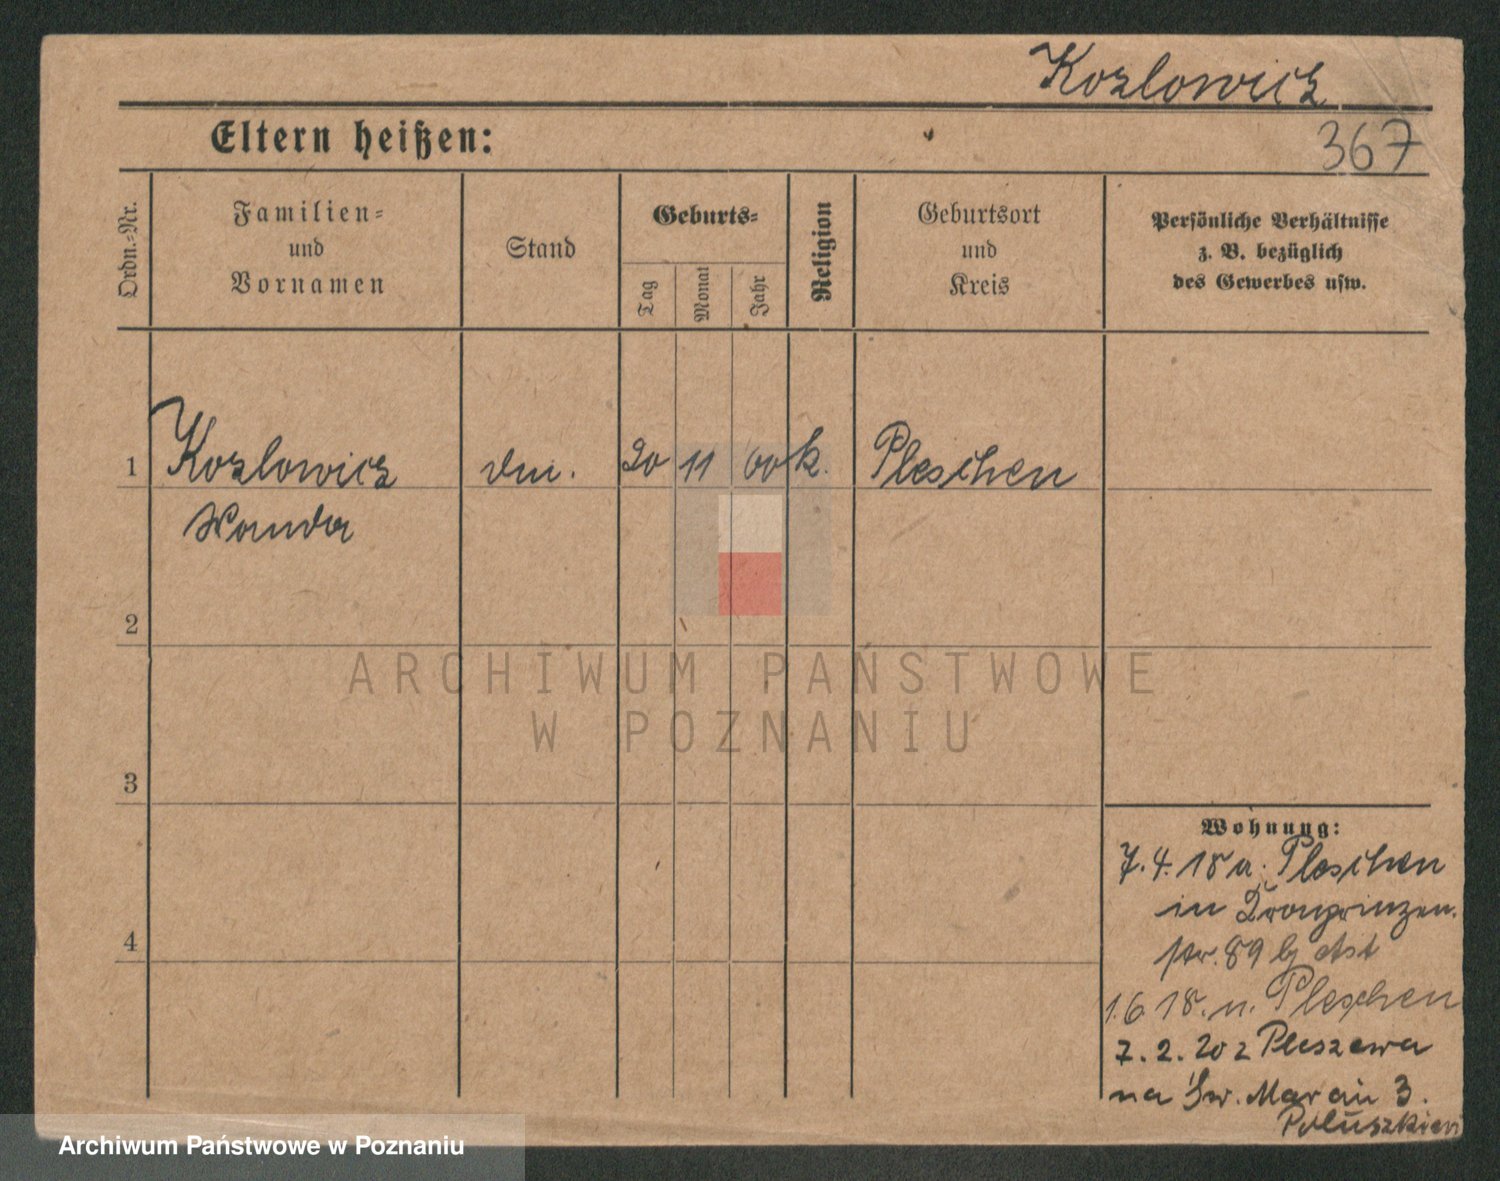 Kozlowicz
Eltern heißen:
367
Ordn.=Nr.
Familien=
und
Vornamen
Stand
Geburts=
Tag
Monat
Jahr
Religion
Geburtsort
und
Kreis
Persönliche Verhältnisse
z. B. bezüglich
des Gewerbes usw.
1
Kozlowicz
Wanda
20
11
00
k.
Pleschen
2
3
4
Wohnung:
7.4.18 a. Pleschen
in Kronprinzen.
str. 89 b
1.6.18. n. Pleschen
7.2.20 z Pleszewa
na Św. Marcin 3.
ARCHIWUM PAŃSTWOWE
W POZNANIU
Archiwum Państwowe w Poznaniu